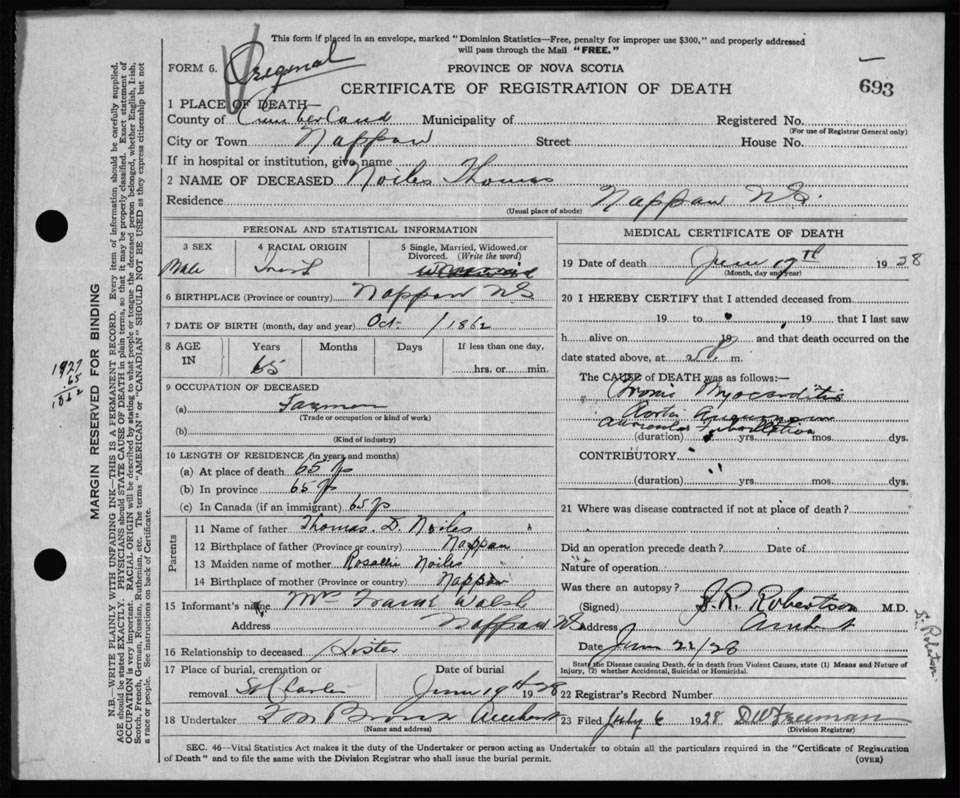 This form if placed in an envelope, marked "Dominion Statistics—Free, penalty for improper use $300," and properly addressed
will pass through the Mail "FREE."
FORM 6.
Original
PROVINCE OF NOVA SCOTIA
CERTIFICATE OF REGISTRATION OF DEATH
693
1 PLACE OF DEATH—
County of Cumberland Municipality of Registered No.
(For use of Registrar General only)
City or Town Nappan Street House No.
If in hospital or institution, give name
2 NAME OF DECEASED Noiles Thomas
Residence Nappan N.S.
(Usual place of abode)
PERSONAL AND STATISTICAL INFORMATION
3 SEX
Male
4 RACIAL ORIGIN
Irish
5 Single, Married, Widowed, or
Divorced. (Write the word)
6 BIRTHPLACE (Province or country) Nappan NS
7 DATE OF BIRTH (month, day and year) Oct. 1862
8 AGE
IN
Years Months Days If less than one day,
65
hrs. or min.
9 OCCUPATION OF DECEASED
(a) Farmer
(Trade or occupation or kind of work)
(b)
(Kind of industry)
10 LENGTH OF RESIDENCE (in years and months)
(a) At place of death 65 ys
(b) In province 65 ys
(c) In Canada (if an immigrant) 65 ys
Parents
11 Name of father Thomas. D. Noiles
12 Birthplace of father (Province or country) Nappan
13 Maiden name of mother Rosalli Noiles
14 Birthplace of mother (Province or country) Nappan
15 Informant's name Mrs Frank Walsh
Address Nappan NS
16 Relationship to deceased Sister
17 Place of burial, cremation or Date of burial
removal St Charles June 19th 1928
18 Undertaker Bros Amherst
(Name and address)
MEDICAL CERTIFICATE OF DEATH
19 Date of death June 17th 1928
(Month, day and year)
20 I HEREBY CERTIFY that I attended deceased from
19 to 19 that I last saw
h alive on 19 and that death occurred on the
date stated above, at m.
The CAUSE of DEATH was as follows:
Chronic Myocarditis
Aortic Aneurysm
Auricular Fibrillation
(duration) yrs. mos. dys.
CONTRIBUTORY
(duration) yrs. mos. dys.
21 Where was disease contracted if not at place of death?
Did an operation precede death? Date of
Nature of operation
Was there an autopsy?
(Signed) J. R. Robertson M.D.
Address Amherst
Date June 21/28
State the Disease causing Death, or in death from Violent Causes, state (1) Means and Nature of
Injury, (2) whether Accidental, Suicidal or Homicidal.
22 Registrar's Record Number
23 Filed July 6 1928 D W Freeman
(Division Registrar)
SEC. 46—Vital Statistics Act makes it the duty of the Undertaker or person acting as Undertaker to obtain all the particulars required in the "Certificate of Registration
of Death" and to file the same with the Division Registrar who shall issue the burial permit. (OVER)
MARGIN RESERVED FOR BINDING
N.B.—WRITE PLAINLY WITH UNFADING INK—THIS IS A PERMANENT RECORD. Every item of information should be carefully supplied.
AGE should be stated EXACTLY. PHYSICIANS should STATE CAUSE OF DEATH in plain terms, so that it may be properly classified. Exact statement of
OCCUPATION is very important. RACIAL ORIGIN will be described by stating what people or tongue the deceased person belonged, whether English, Irish,
Scotch, French, German, Russian, Ruthenian, etc. The terms "AMERICAN" or "CANADIAN" SHOULD NOT BE USED as they express citizenship but not
a race or people. See instructions on back of Certificate.
1927
65
1862
Robertson